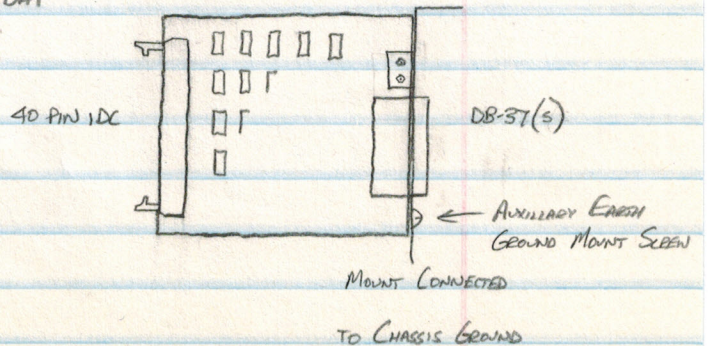 40 PIN IDC
DB-37(s)
AUXILLARY EARTH
GROUND MOUNT SCREW
MOUNT CONNECTED
TO CHASSIS GROUND